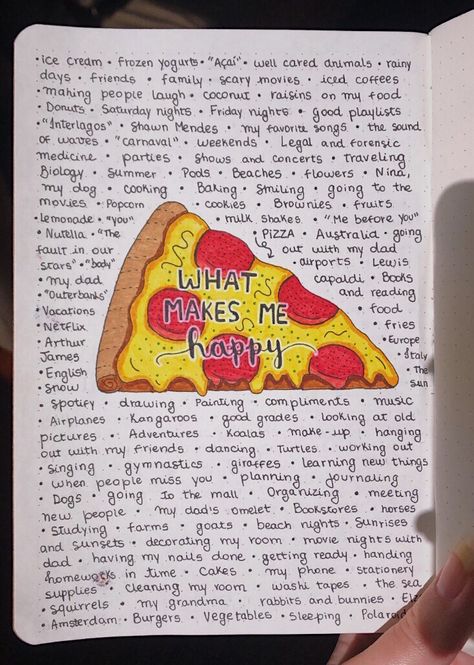 •ice cream • frozen yogurts • "Açaí" • well cared animals • rainy
days • friends • family • scary movies • iced coffees
•making people laugh • coconut • raisins on my food
• Donuts • Saturday nights • Friday nights • good playlists
•"Interlagos" • Shawn Mendes • my favorite songs • the sound
of waves • "carnaval" • weekends • Legal and forensic
medicine • parties • shows and concerts • Traveling
Biology • Summer • Pods • Beaches • flowers • Nina,
my dog • cooking • Baking • Smiling • going to the
movies • Popcorn • cookies • Brownies • fruits
•lemonade • "you" • milk shakes • "Me before you"
• Nutella • "The • PIZZA • Australia • going
fault in our out with my dad
stars" • "body" • airports • Lewis
• my dad capaldi • Books
•"Outerbanks" and reading
Vacations • food
• Netflix • fries
• Arthur • Europe
James • Italy
• English • The
• Snow sun
WHAT
MAKES ME
happy
• Spotify • drawing • Painting • compliments • music
• Airplanes • Kangaroos • good grades • looking at old
pictures • Adventures • Koalas • make-up • hanging
out with my friends • dancing • Turtles • working out
• Singing • gymnastics • giraffes • learning new things
• when people miss you • planning • journaling
• Dogs • going to the mall • Organizing • meeting
new people • my dad's omelet • Bookstores • horses
• Studying • farms • goats • beach nights • Sunrises
and sunsets • decorating my room • movie nights with
dad • having my nails done • getting ready • handing
homeworks in time • Cakes • my phone • stationery
supplies • cleaning my room • washi tapes • the sea
• squirrels • my grandma • rabbits and bunnies •
• Amsterdam • Burgers • Vegetables • Sleeping •